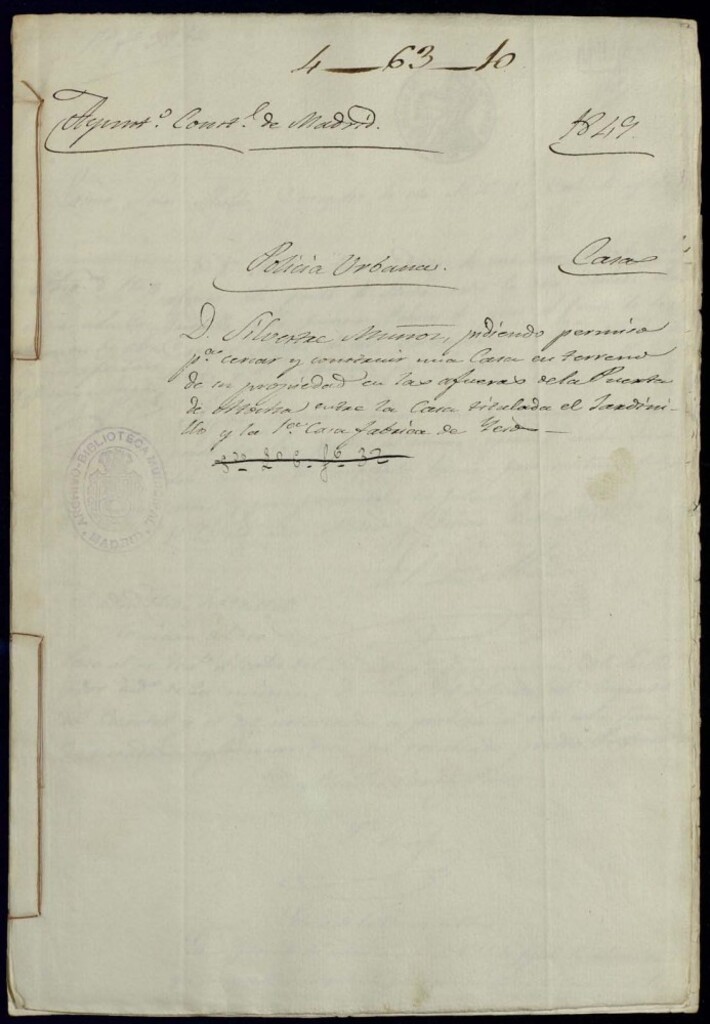 4—63—10
Ayunt.º Const.l de Madrid.
1849.
Policia Urbana.
Casas
D. Silvestre Muñoz, pidiendo permiso
p.ª cercar y construir una Casa en terreno
de su propiedad en las afueras de la Puerta
de Atocha entre la Casa titulada el Jardini-
llo y la 1.ª Casa fabrica de Yeso—
ARCHIVO-BIBLIOTECA MUNICIPAL
MADRID